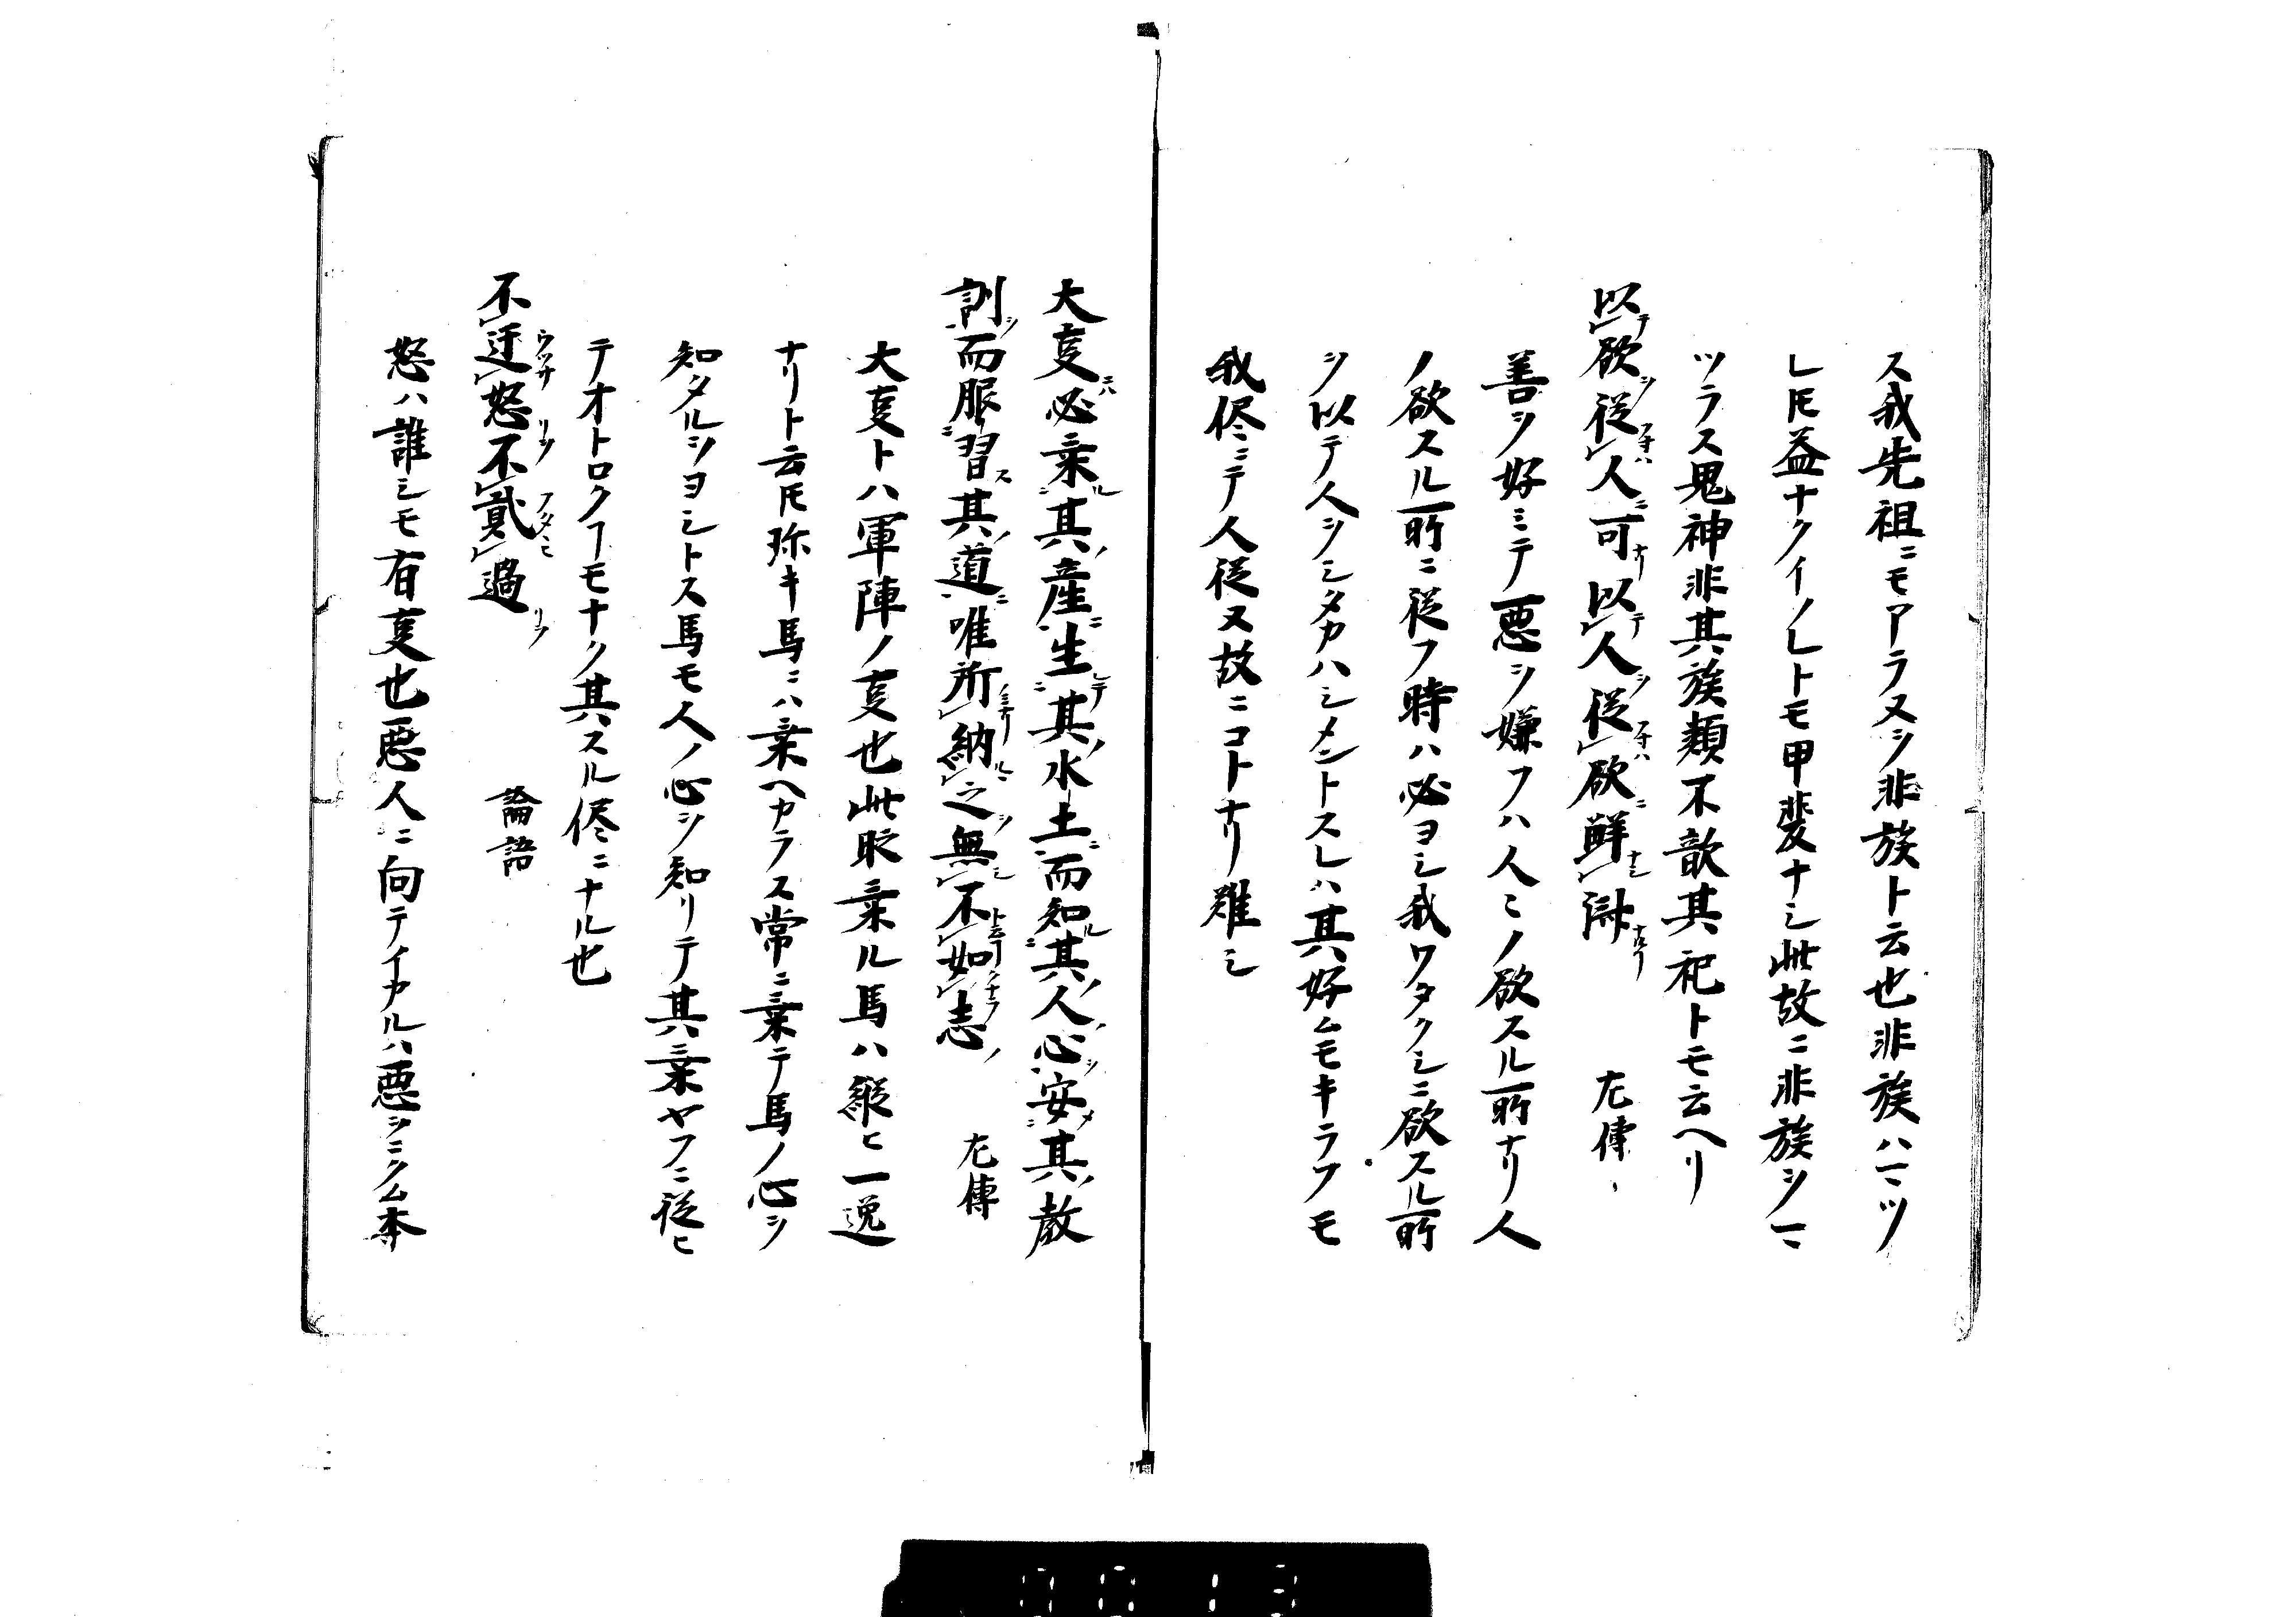 ス我先祖ニモアラヌヲ非族ト云也非族ハマツ
レ𪜈益ナクイノレトモ甲斐ナシ此故ニ非族ヲマ
ツラス鬼神非其族類不歆其祀トモ云ヘリ
以欲從人可以人從欲鮮済 左傳
善ヲ好ミテ悪ヲ嫌フハ人〻ノ欲スル所ナリ人
ノ欲スル所ニ従フ時ハ必ヨシ我ワタクシニ欲スル所
ヲ以テ人ヲシタカハシメントスレハ其好ムモキラフモ
我侭ニテ人従ヌ故ニコトナリ難シ
大事必乗其産生其水土而知其人心安其教
訓而服習其道唯所納之無不如志 左傳
大事トハ軍陣ノ事也此時乗ル馬ハ縦ヒ一逸
ナリト云𪜈珎キ馬ニハ乗ヘカラス常ニ乗テ馬ノ心ヲ
知タルヲヨシトス馬モ人ノ心ヲ知リテ其乗ヤフニ従ヒ
テオトロクヿモナク其スル侭ニナル也
不迁怒不貳過 論語
怒ハ誰シモ有事也悪人ニ向テイカルハ悪ヲニクム本